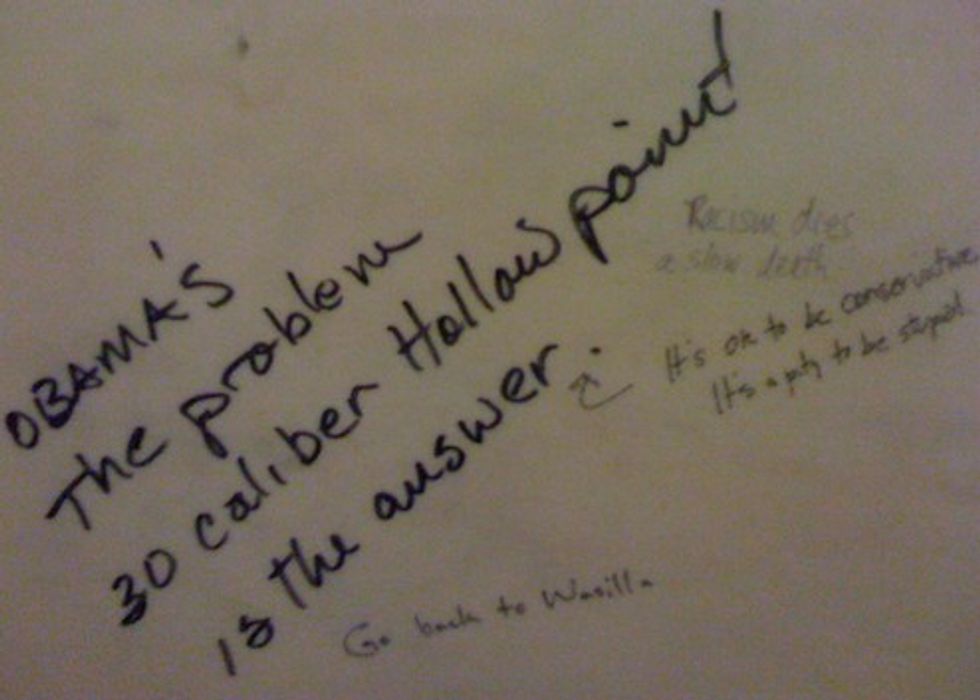 OBAMA'S
The problem
30 caliber Hollow point
is the answer.
Racism dies
a slow death
It's ok to be conservative
It's a pity to be stupid
Go back to Wasilla